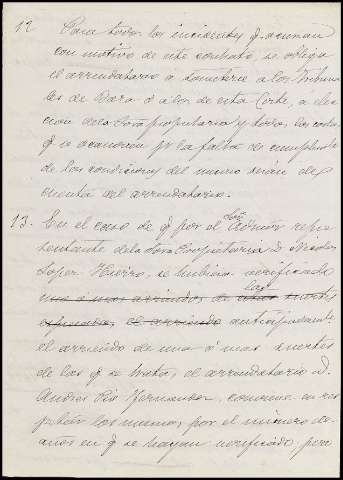 12 Para todos los incidentes q. ocurran
con motivo de este contrato, se obliga
el arrendatario a someterse a los Tribuna
les de Baza ó a los de esta Corte, a elec
cion de la Sora propietaria y todos los costas
q. se ocasionen pr la falta de cumplimto
de las condiciones del mismo serán de
cuenta del arrendatario.
13. En el caso de q. por el Sor Admor repre
sentante de la Sora Propietaria D. Nicolas
Lopez Hierro, se hubiera verificado
uno ó mas arriendos, de las suertes
el arriendo anticipadamte
el arriendo de una ó mas suertes
de las q. se trata, el arrendatario D.
Andres Pio Fernandez, conviene en res
ptar los mismos, por el número de
años en q. se hayan verificado; pero